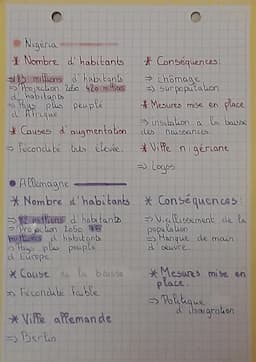 Nigéria
* Nombre d'habitants
=> 183 millions d'habitants
=> Projection 2050 420 millions
d'habitants
=> Pays plus peuplé
d'Afrique
* Causes d'augmentation
=> Fécondité très élevée.
* Conséquences:
=> chômage
=> surpopulation
* Mesures mise en place
=> insitation a la baisse
des naissances.
* Ville nigériane
=> Lagos
Allemagne
* Nombre d'habitants
=> 82 millions d'habitants
=> Projection 2050
millions d'habitants
=> Pays plus peuplé
d'Europe
* Cause de la baisse
=> Fécondité Faible
* Ville allemande
=> Berlin
* Conséquences:
=> Vieillissement de la
population
=> Manque de main
d'oeuvre
* Mesures mise en
place.
=> Politique
d'immigration